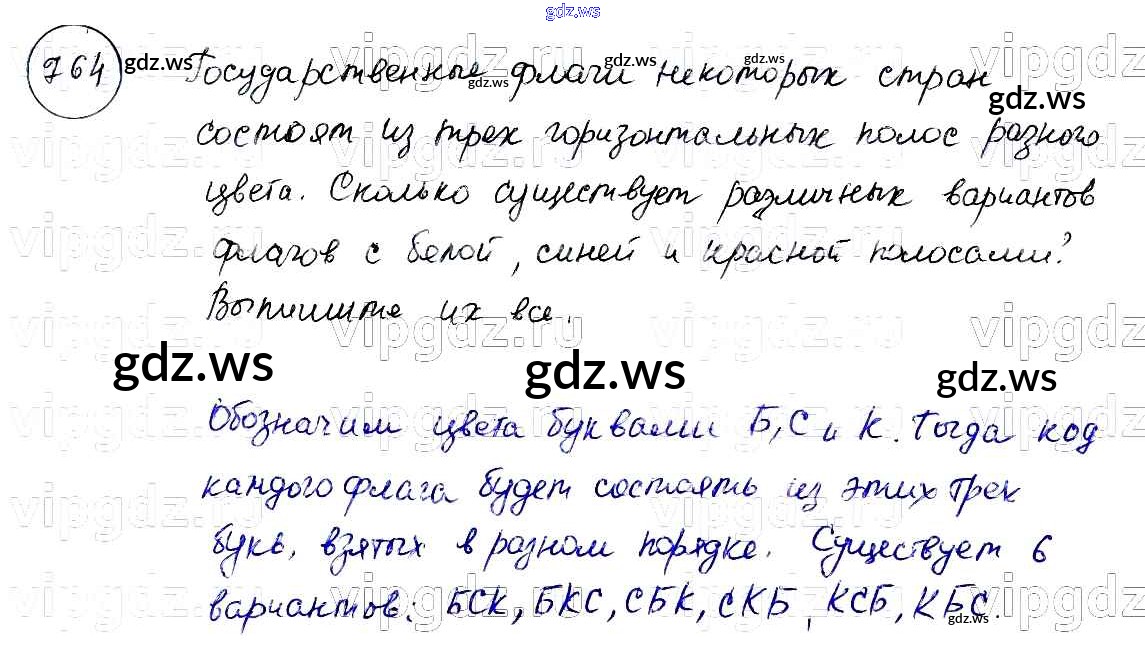 gdz.ws
764 gdz.ws Государственные флаги некоторых стран
gdz.ws gdz.ws gdz.ws gdz.ws
состоят из трех горизонтальных полос разного
цвета. Сколько существует различных вариантов
флагов с белой, синей и красной полосами?
Выпишите их все.
gdz.ws gdz.ws gdz.ws
Обозначим цвета буквами Б, С и К. Тогда код
каждого флага будет состоять из этих трех
букв, взятых в разном порядке. Существует 6
вариантов: БСК, БКС, СБК, СКБ, КСБ, КБС.
gdz.ws
vipgdz.ru vipgdz.ru vipgdz.ru